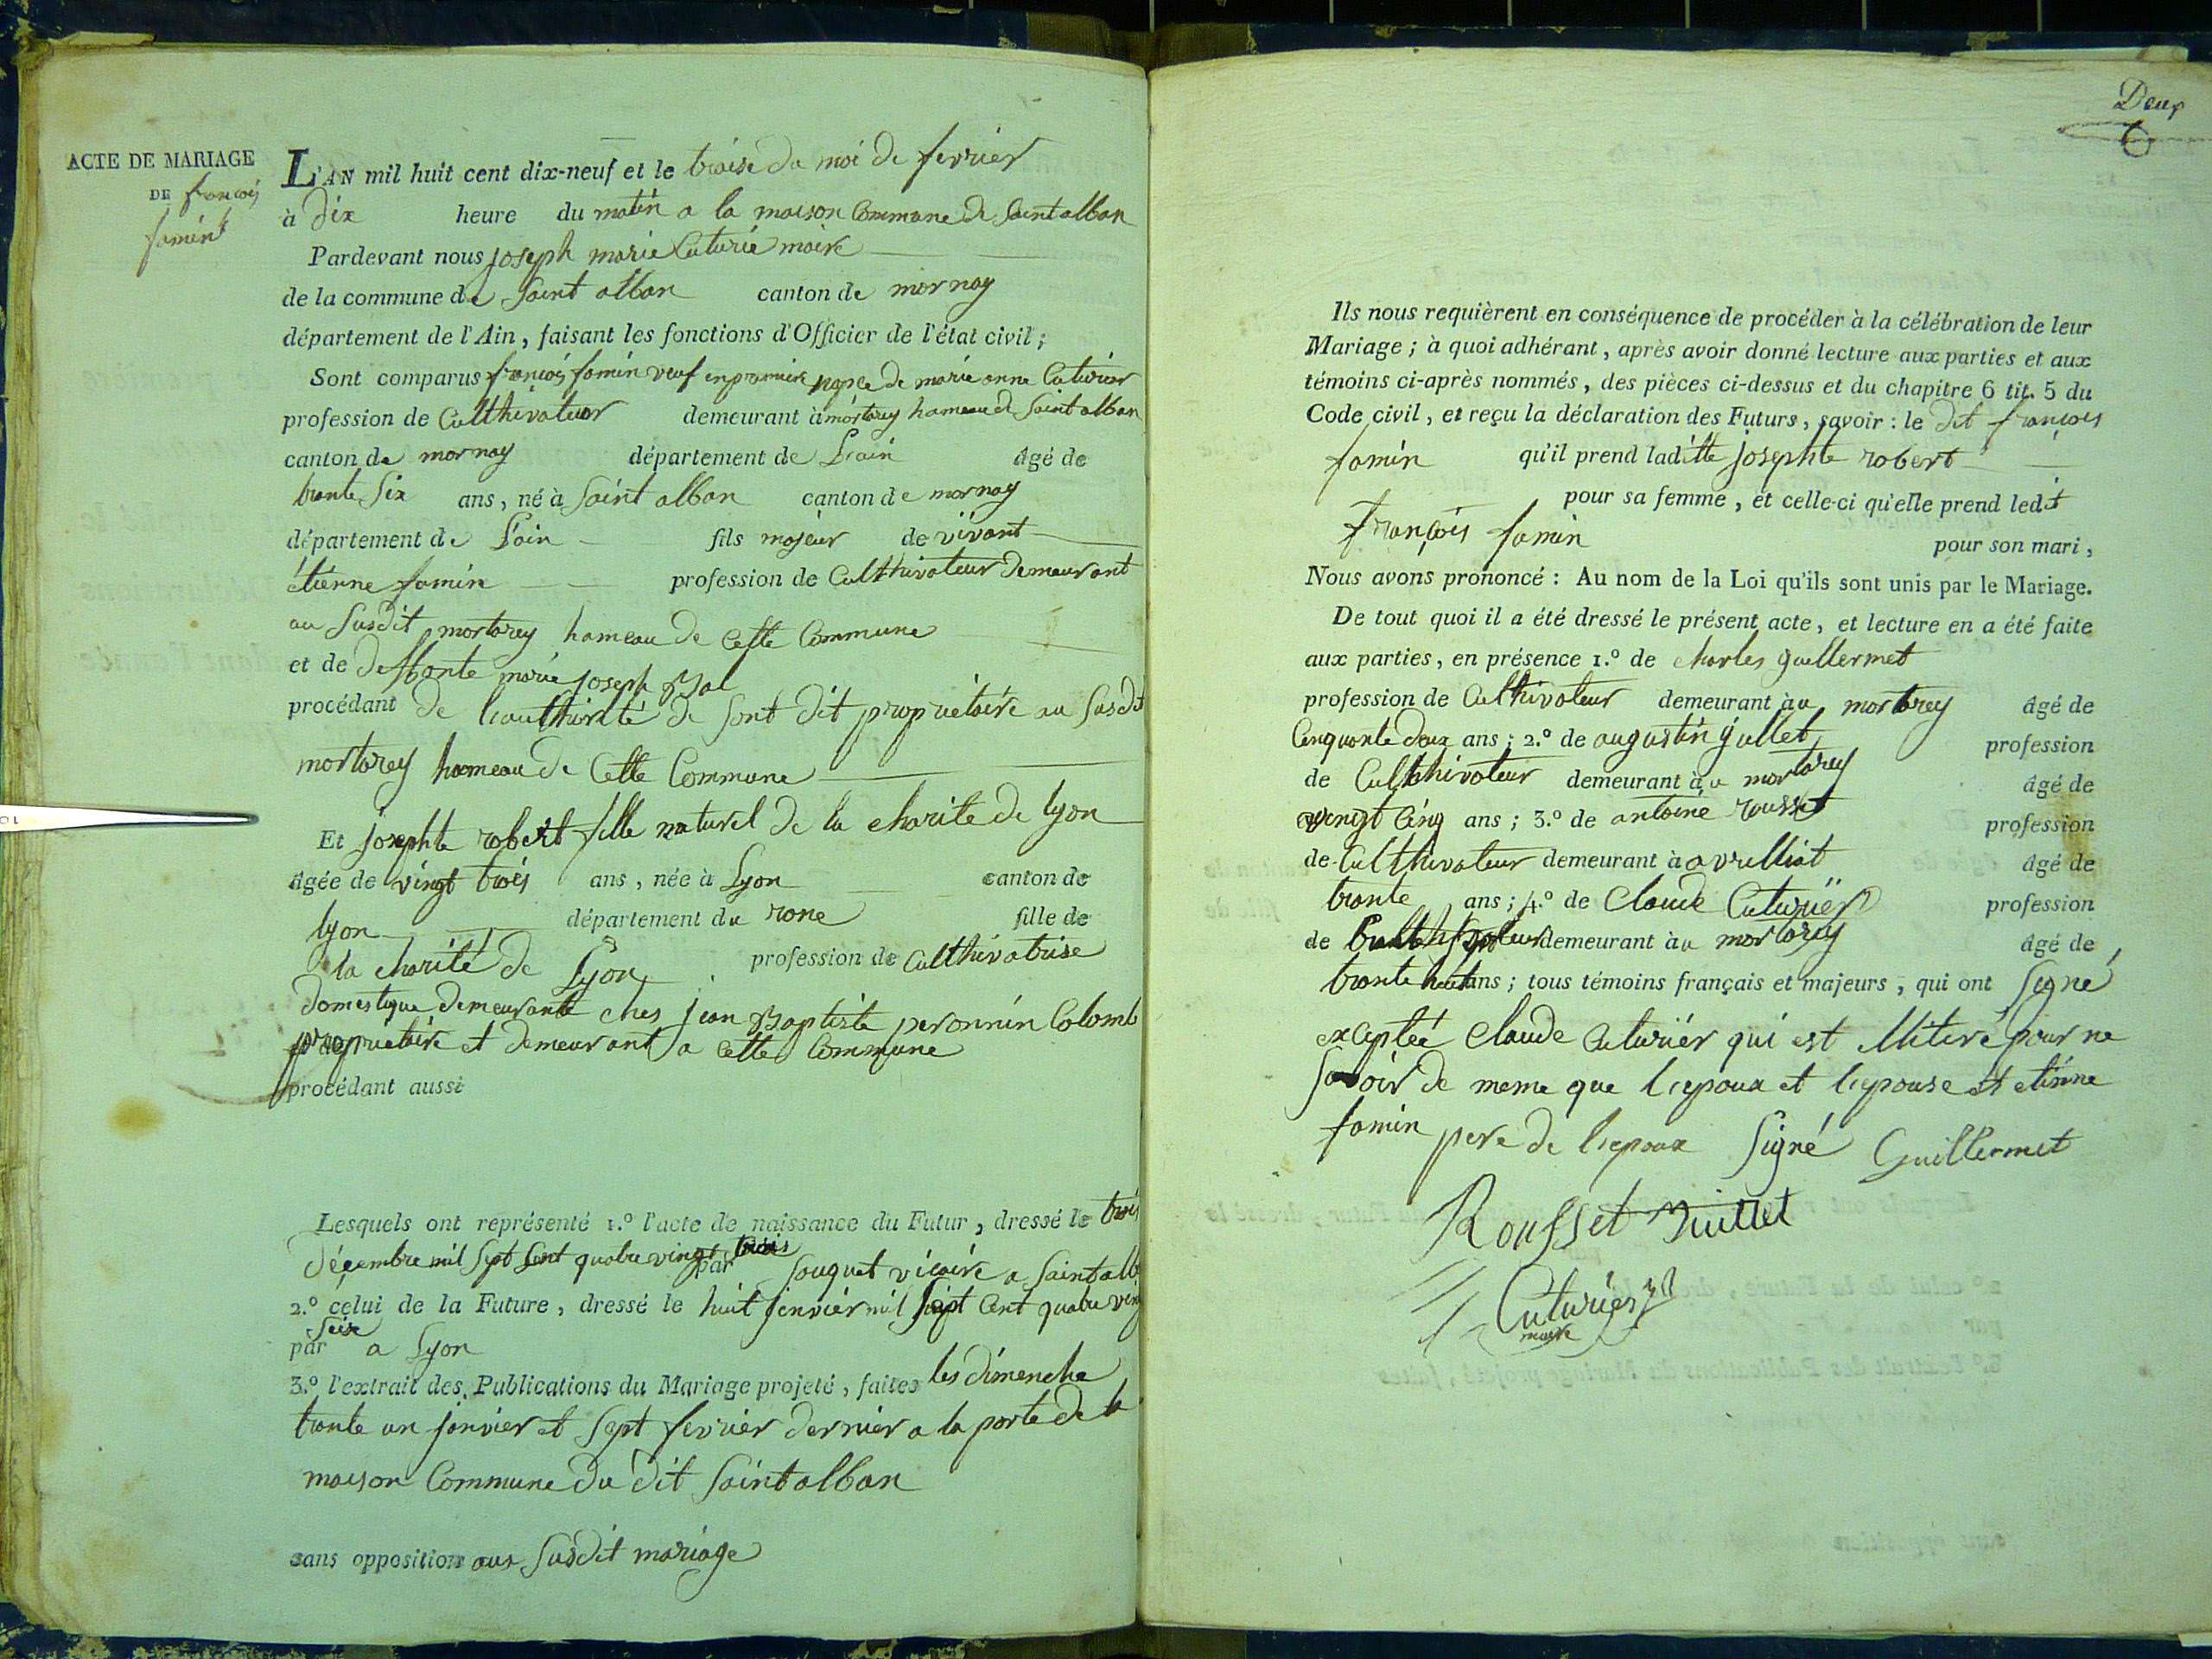 ACTE DE MARIAGE
DE françois
famin
L'AN mil huit cent dix-neuf et le traise du moi de fevrier
à dix heure du matin a la maison Commune de Saint alban
Pardevant nous joseph marie Cuturié maire
de la commune de Saint alban canton de mornay
département de l'Ain, faisant les fonctions d'Officier de l'état civil;
Sont comparus françois famin veuf en premiere nopce de marie anne Cuturier
profession de Cullthivateur demeurant à mortarey hameau de Saint alban
canton de mornay département de L'ain âgé de
trante Six ans, né à Saint alban canton de mornay
département de L'ain fils majeur de vivant
étiénne famin profession de Cullthivateur demeurant
au Susdit mortarey hameau de Cette Commune
et de deffbonte marie joseph Bal
procédant de l'aauthorité de sont dit propriétaire au Susdit
mortarey hameau de Cette Commune
Et josephte robert fille naturel de la charite de lyon
âgée de vingt trois ans, née à Lyon canton de
lyon département du rone fille de
la charité de Lyon profession de Cullthivatrise
domestique demeurante ches jean Baptiste peronnin Colomb
propriétaire et demeurant a cette Commune
procédant aussi
Lesquels ont représenté 1.º l'acte de naissance du Futur, dressé le trois
décembre mil Sept Cent quatre vingt trois par souquet vicaire a Saint alb
2.º celui de la Future, dressé le huit jenvier mil Sept Cent quatre ving
Seize
par a Lyon
3.º l'extrait des Publications du Mariage projeté, faites les dimenche
trante un janvier et Sept fevrier dernier a la porte de la
maison Commune du dit Saint alban
sans opposition aux Susdit mariage
Deux
Ils nous requièrent en conséquence de procéder à la célébration de leur
Mariage; à quoi adhérant, après avoir donné lecture aux parties et aux
témoins ci-après nommés, des pièces ci-dessus et du chapitre 6 tit. 5 du
Code civil, et reçu la déclaration des Futurs, savoir: le dit françois
famin qu'il prend laditte josephte robert
pour sa femme, et celle-ci qu'elle prend ledit
françois famin pour son mari,
Nous avons prononcé: Au nom de la Loi qu'ils sont unis par le Mariage.
De tout quoi il a été dressé le présent acte, et lecture en a été faite
aux parties, en présence 1.º de charles guillermet
profession de Culthivateur demeurant à au mortarey âgé de
Cinquante deux ans; 2.º de augustin jullet profession
de Culthivateur demeurant à au mortarey âgé de
vingt Cinq ans; 3.º de antoine rousset profession
de Culthivateur demeurant à avrilliat âgé de
trante ans; 4.º de Claude Cuturiér profession
de Culthivateur demeurant à au mortarey âgé de
trante huit ans; tous témoins français et majeurs, qui ont Signé
exceptée Claude Cuturiér qui est illiteré pour ne
Savoir de meme que l'epoux et l'epouse et etiénne
famin pere de l'epoux Signé Guillermet
Rousset Juillet
Cuturier
maire